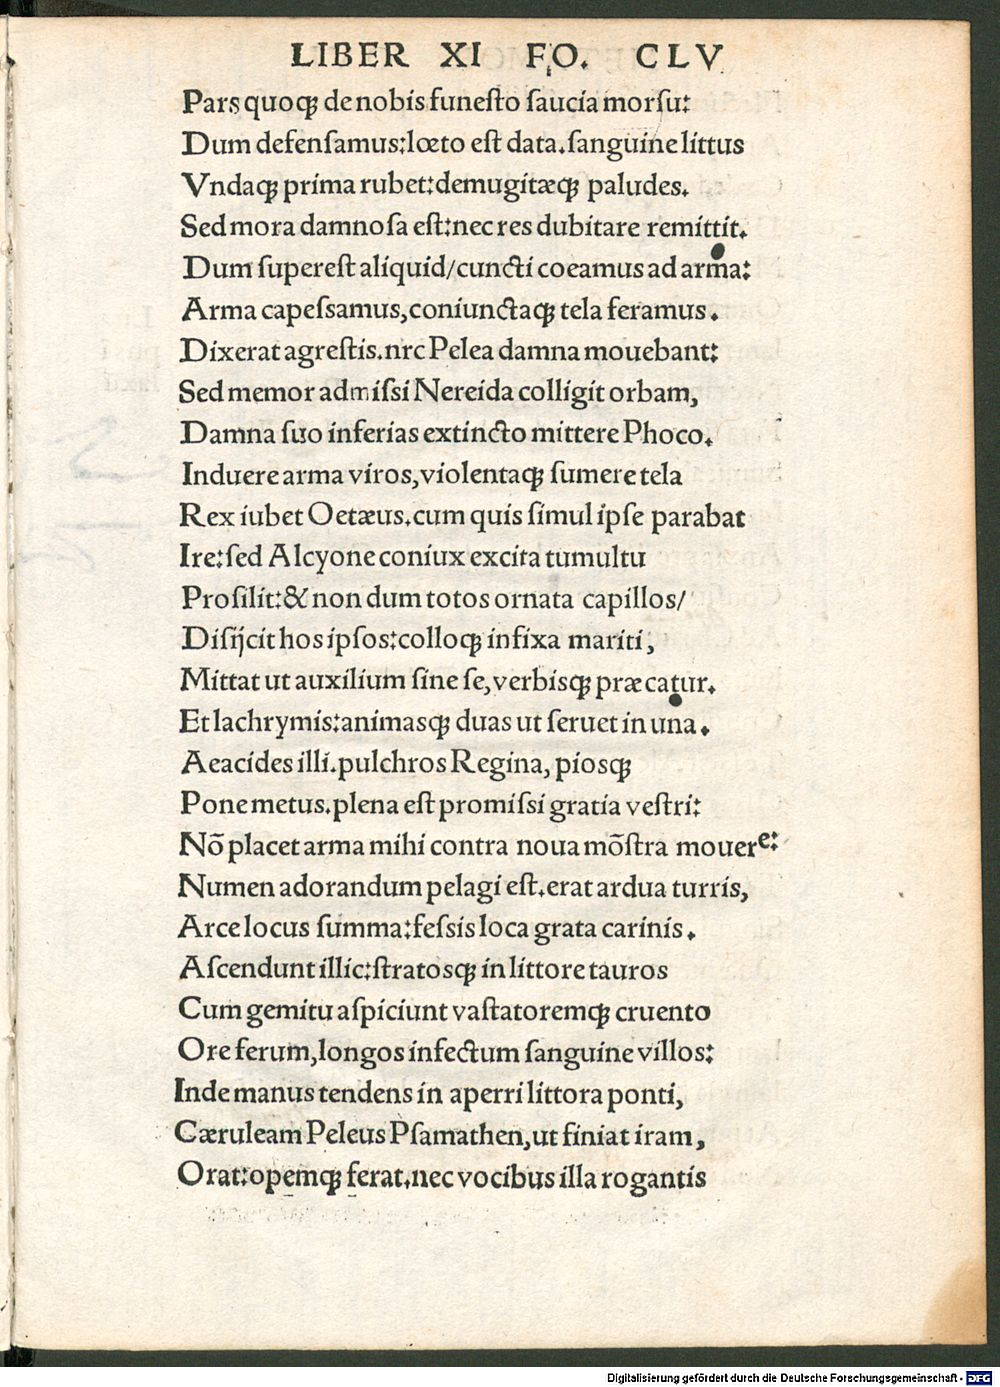 LIBER XI FO. CLV
Pars quoqꝫ de nobis funeſto ſaucia morſu:
Dum defenſamus:lœto eſt data.ſanguine littus
Vndaqꝫ prima rubet:demugitæqꝫ paludes.
Sed mora damnoſa eſt:nec res dubitare remittit.
Dum ſupereſt aliquid/cuncti coeamus ad arma:
Arma capeſſamus,coniunctaqꝫ tela feramus.
Dixerat agreſtis.nrc Pelea damna mouebant:
Sed memor admiſſi Nereida colligit orbam,
Damna ſuo inferias extincto mittere Phoco.
Induere arma viros,violentaqꝫ ſumere tela
Rex iubet Oetæus.cum quis ſimul ipſe parabat
Ire:ſed Alcyone coniux excita tumultu
Proſilit:& non dum totos ornata capillos/
Diſijcit hos ipſos:colloqꝫ infixa mariti,
Mittat ut auxilium ſine ſe,verbisqꝫ præcatur.
Et lachrymis:animasqꝫ duas ut ſeruet in una.
Aeacides illi.pulchros Regina,piosqꝫ
Pone metus.plena eſt promiſſi gratia veſtri:
Nõ placet arma mihi contra noua mõſtra mouere:
Numen adorandum pelagi eſt.erat ardua turris,
Arce locus ſumma:feſſis loca grata carinis.
Aſcendunt illic:ſtratosqꝫ in littore tauros
Cum gemitu aſpiciunt vaſtatoremqꝫ cruento
Ore ferum,longos infectum ſanguine villos:
Inde manus tendens in aperri littora ponti,
Cæruleam Peleus Pſamathen,ut finiat iram,
Orat:opemqꝫ ferat.nec vocibus illa rogantis
Digitalisierung gefördert durch die Deutsche Forschungsgemeinschaft - DFG